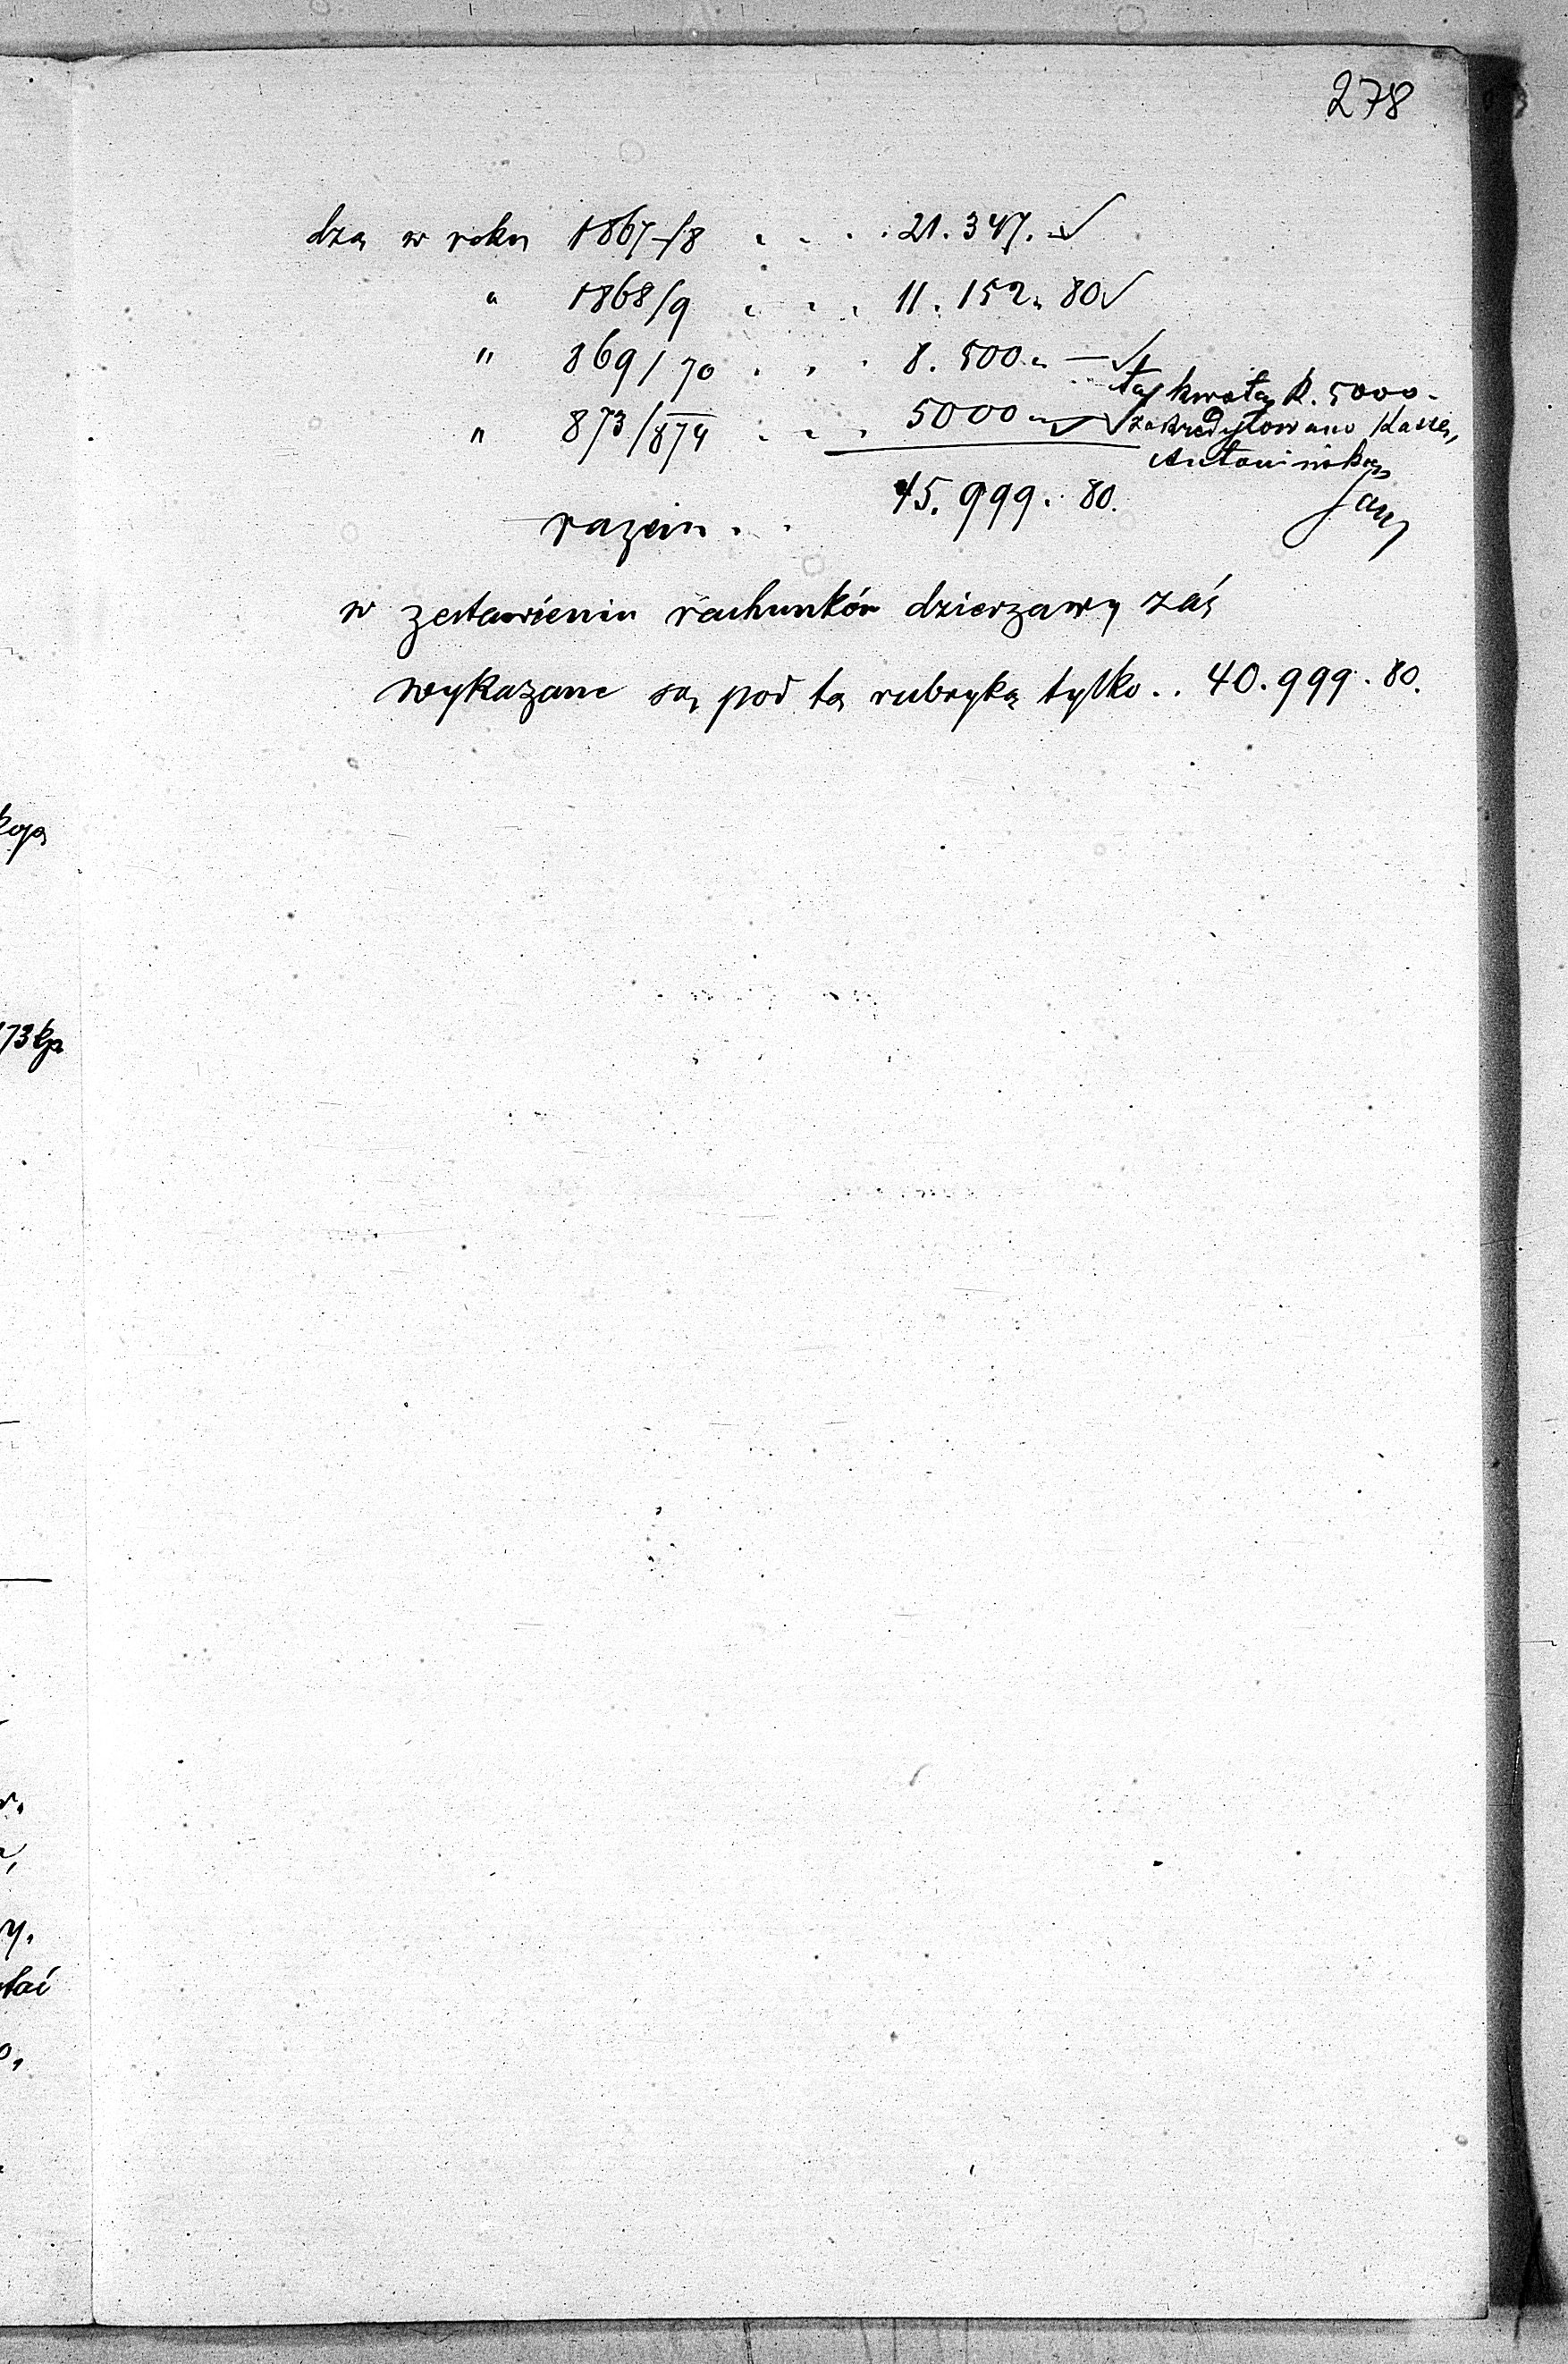 278
dzą w roku 1867/8 . . . . 21.347. — ✓
" 1868/9 . . . 11.152. 80 ✓
" 869/70 . . . 8.500. — ✓
" 873/874 . . . 5000 — ✓
tąż kwotą R. 5000.—
zakredytowano Kassę
Antonińską
razem . . 45.999. 80.
w zestawieniu rachunków dzierzawy zaś
wykazane są pod tą rubryką tylko . . 40.999. 80.
73 kp